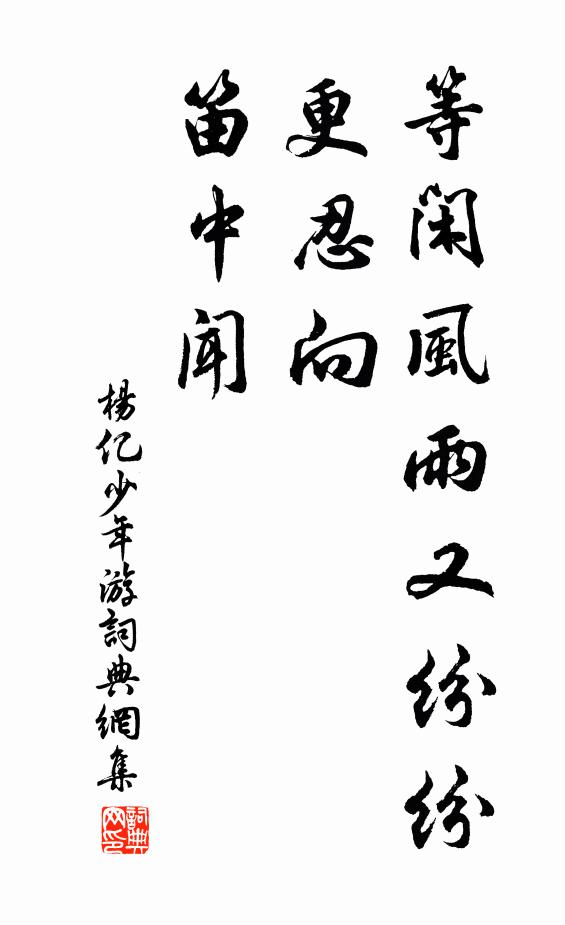 等閑風雨又紛紛
更忍向
笛中聞
楊亿少年游詞典網集
詞典
网印